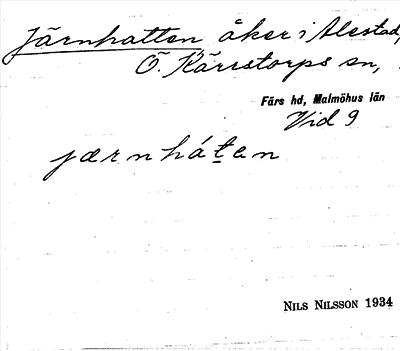 Järnhatten åker i Alestad,
Ö. Kärrstorps sn,
Färs hd, Malmöhus län
Vid 9
jærnhát̲en
NILS NILSSON 1934